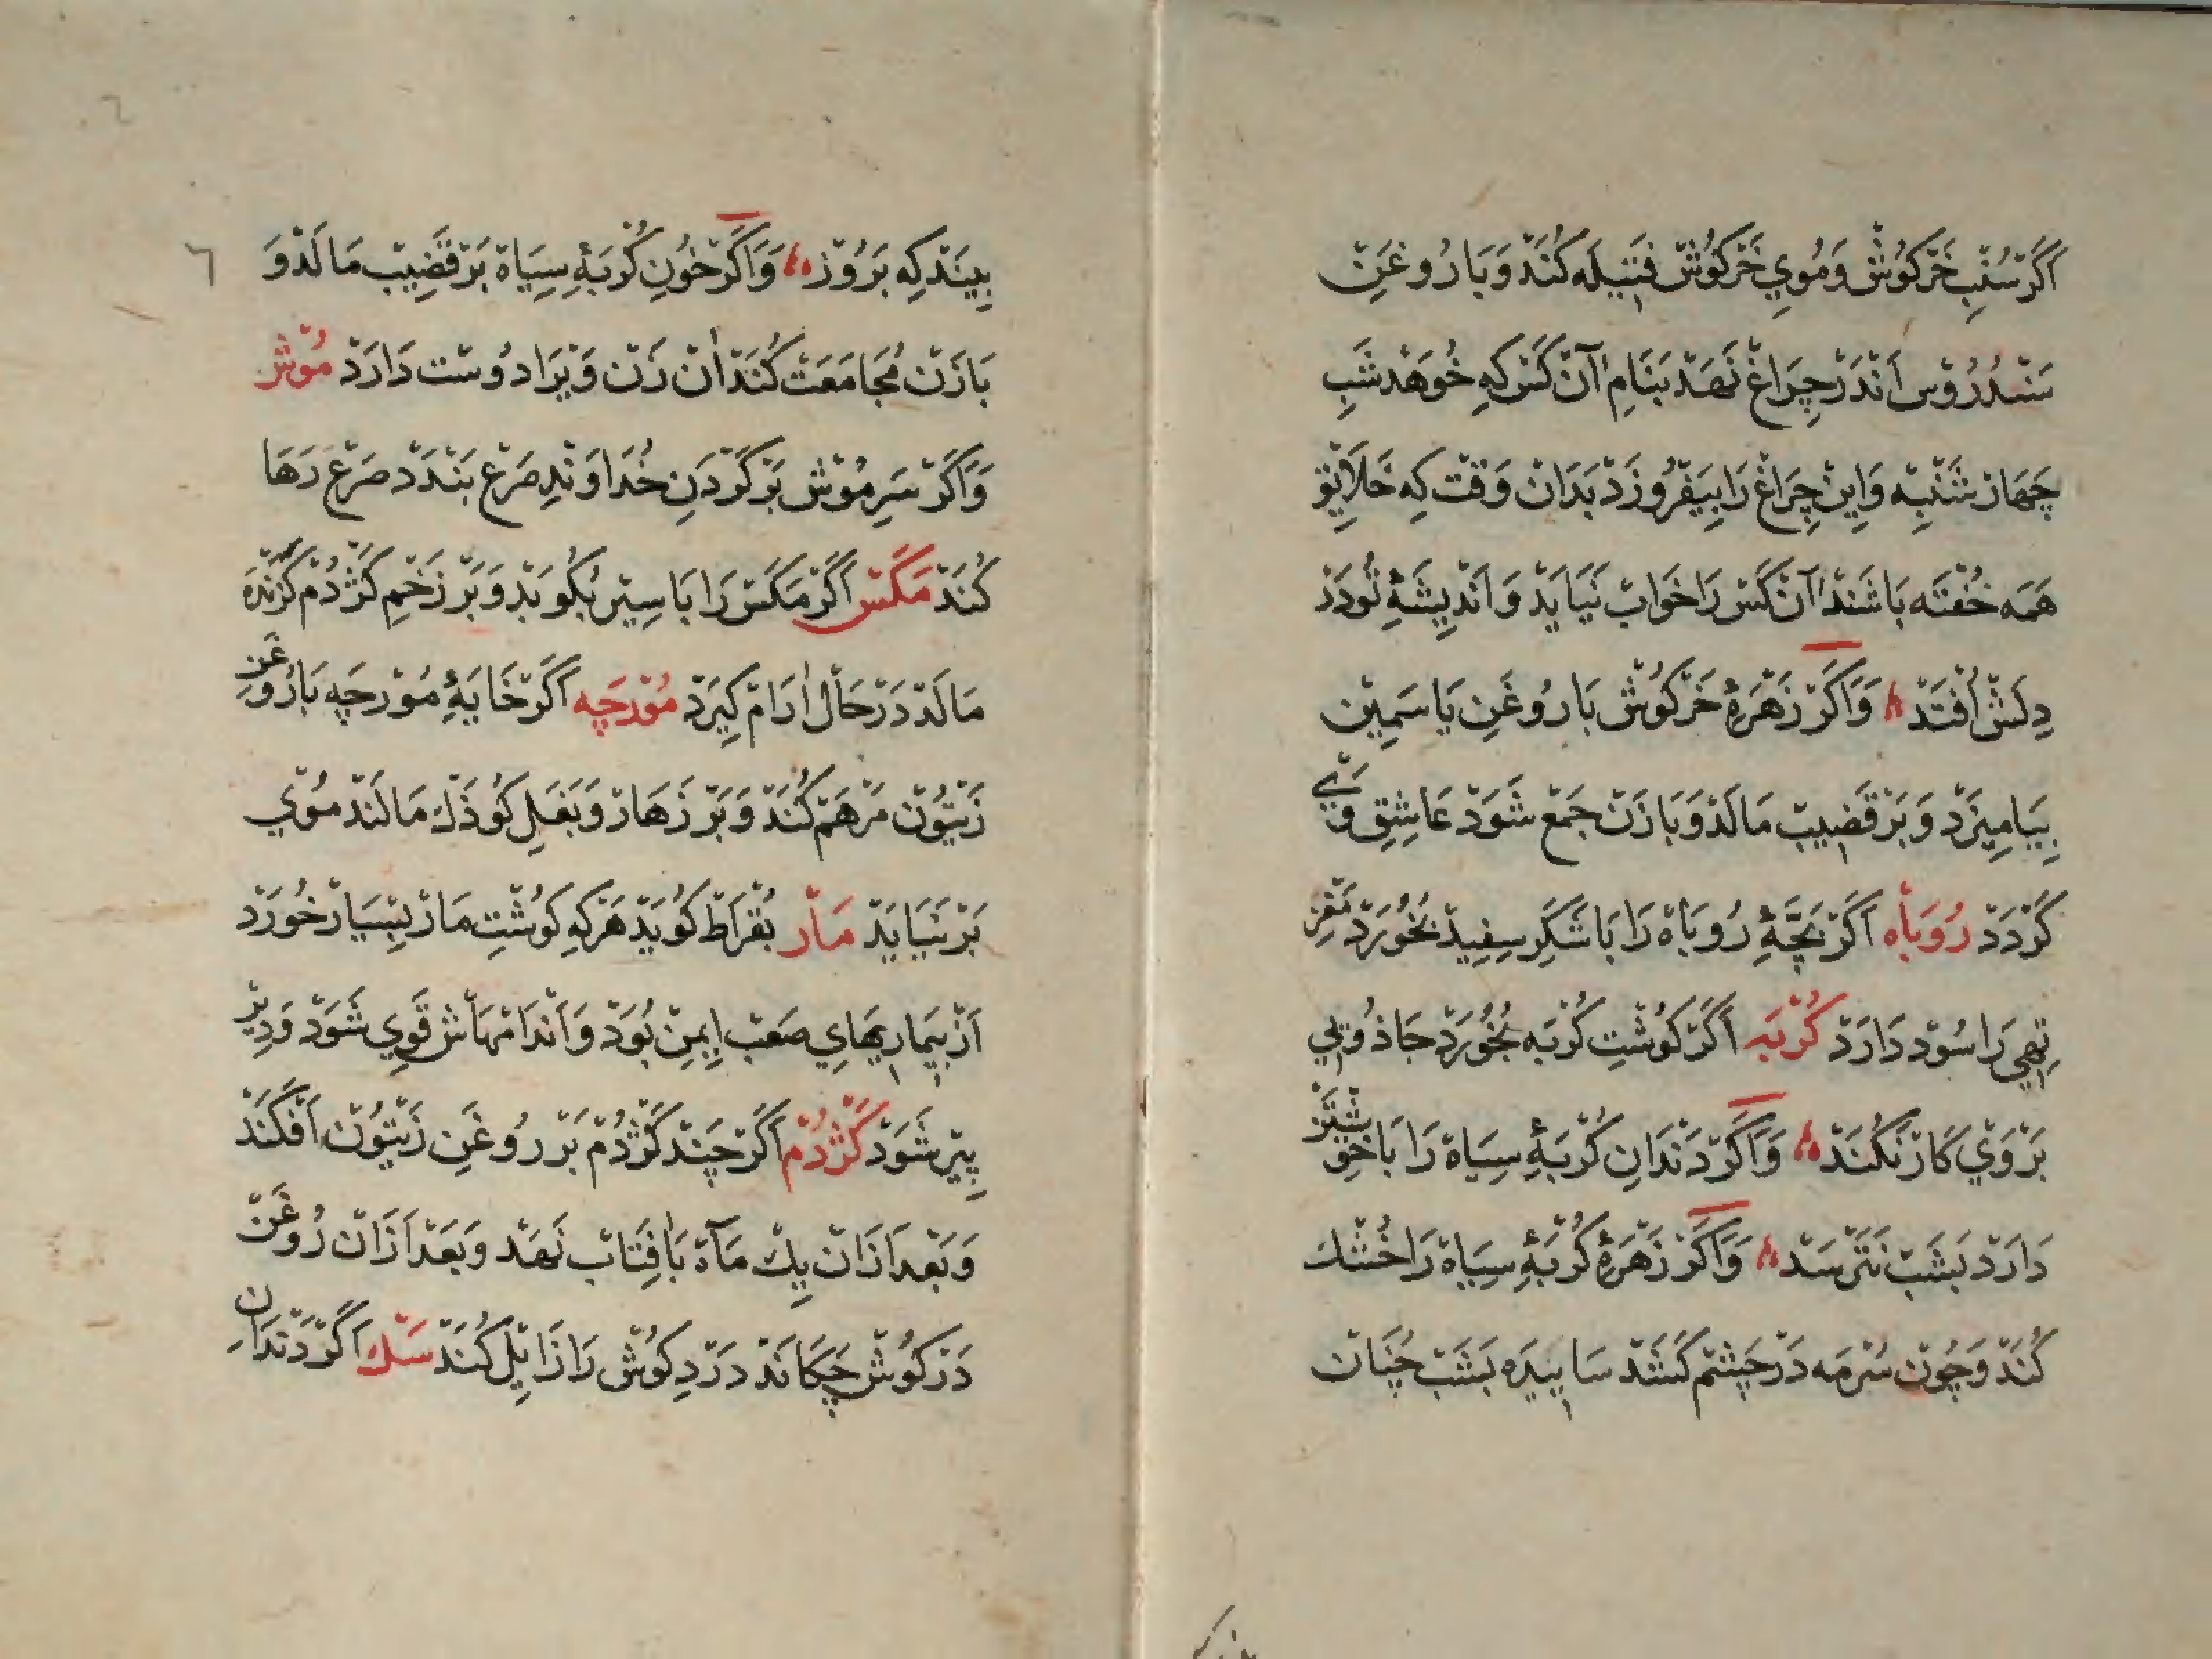 اَگَرْ سُنْبِ خَرْکُوشْ وَمُویِ خَرْکُوشْ فَتِیلَه کُنَدْ وَبَا رُوغَنِ
سَنْدُرُوْس اَنْدَرْ چِرَاغْ نَهَدْ بَنَامِ آنْ کَسْ کِهِ خُوهَدْ شَبِ
چَهَارْ شَنْبِه وَاِینْ چِرَاغْ رَا بِیَفْرُوزَدْ بَدَانْ وَقْت کِه خَلَایِقْ
هَمَه خُفْتَه بَاشَنْدْ آنْ کَسْ رَا خَوَابْ نَیَایَدْ وَ اَنْدِیشَهٔ تُو دَرْ
دِلَشْ اُفْتَدْ وَاَکَرْ زَهْرَهٔ خَرْکُوشْ بَا رُوغَنِ یَاسَمِیْن
بِیَامِیزَدْ وَ بَرْ قَضِیبْ مَالَدْ وَ بَا زَنْ جَمْع شَوَدْ عَاشِقِ وَیْ
گَرْدَدْ رُوبَاه اَکَرْ بَچَّهٔ رُوبَاهْ رَا بَا شَکَرِ سِفِیدْ بخُورَدْ مَغْزِ
تِهِی رَا سُوْد دَارَدْ کُرْبَه اَکَرْ کُوشْتِ کُرْبَه بخُورَدْ جَاذُویِی
بَرْ وَیْ کَارْ نَکُنَدْ وَاَکَرْ دَنْدَانِ کُرْبَهٔ سِیَاهْ رَا بَا خوِیْشْتَنْ
دَارَدْ بَشَبْ نَتَرْسَدْ وَاَکَرْ زَهْرَهٔ کُرْبَهٔ سِیَاهْ رَا خُشْک
کُنَدْ وَچُونْ سُرْمَه دَرْ چَشْم کَشَدْ سَایِیدَه بَشَبْ چُنَانْ
٦
بِینَدْ کِه بَرُوْز وَاَکَرْ خُونِ کُرْبَهٔ سِیَاهْ بَرْ قَضِیبْ مَالَدْ وَ
بَا زَنْ مُجَامَعَتْ کُنَدْ اٰنْ زَنْ وَیْرَا دُوسْت دَارَدْ مُوْشْ
وَاَکَرْ سَرِ مُوْش بَرْ کَرْدَنِ خُدَاوَنْدِ صَرْع بَنْدَدْ صَرْعْ رَهَا
کُنَدْ مَکَسْ اَکَرْ مَکَسْ رَا بَا سِیْر بکُوبَدْ وَ بَرْ زَخْمِ کَژْدُمْ کَزَنْدَه
مَالَدْ دَرْ حَالْ اٰرَامْ کِیرَدْ مُوْرچَه اَکَرْ خَایَهٔ مُوْرچَه بَا رُوغَنِ
زَیْتُونْ مَرْهَمْ کُنَدْ وَ بَرْ زَهَارْ وَ بَغَلِ کُوذَكْ مَالَنْد مُوْی
بَرْ نَیَایَدْ مَاْر بُقْرَاطْ کُویَدْ هَرْکِهِ کُوشْتِ مَارْ بِسْیَارْ خُورَدْ
اَزْ بِیمَارِیهَایِ صَعْبْ اِیمِنْ بُوَدْ وَ اَنْدَامْهَاشْ قَوِی شَوَدْ وَ دِیْر
پِیْر شَوَدْ کَژْدُمْ اَکَرْ چَنْد کَژْدُمْ بَرْ رُوغَنِ زَیْتُونْ اَفْکَنَدْ
وَ بَعْدَ اَزَانْ یِكْ مَاهْ بَافِتَابْ نَهَدْ وَ بَعْدَ اَزَانْ رُوغَنْ
دَرْ کُوشْ چَکَانَدْ دَرْدِ کُوشْ رَا زَایِلْ کُنَدْ سَكْ اَکَرْ دَنْدَانِ